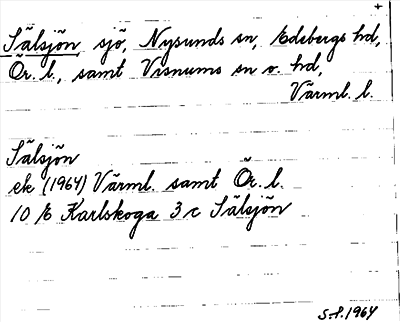 +
Sälsjön, sjö, Nysunds sn, Edsbergs hd,
Ör. l., samt Visnums sn o. hd,
Värml. l.
Sälsjön
ek (1964) Värml. samt Ör. l.
10 E Karlskoga 3 c Sälsjön
S.P. 1964